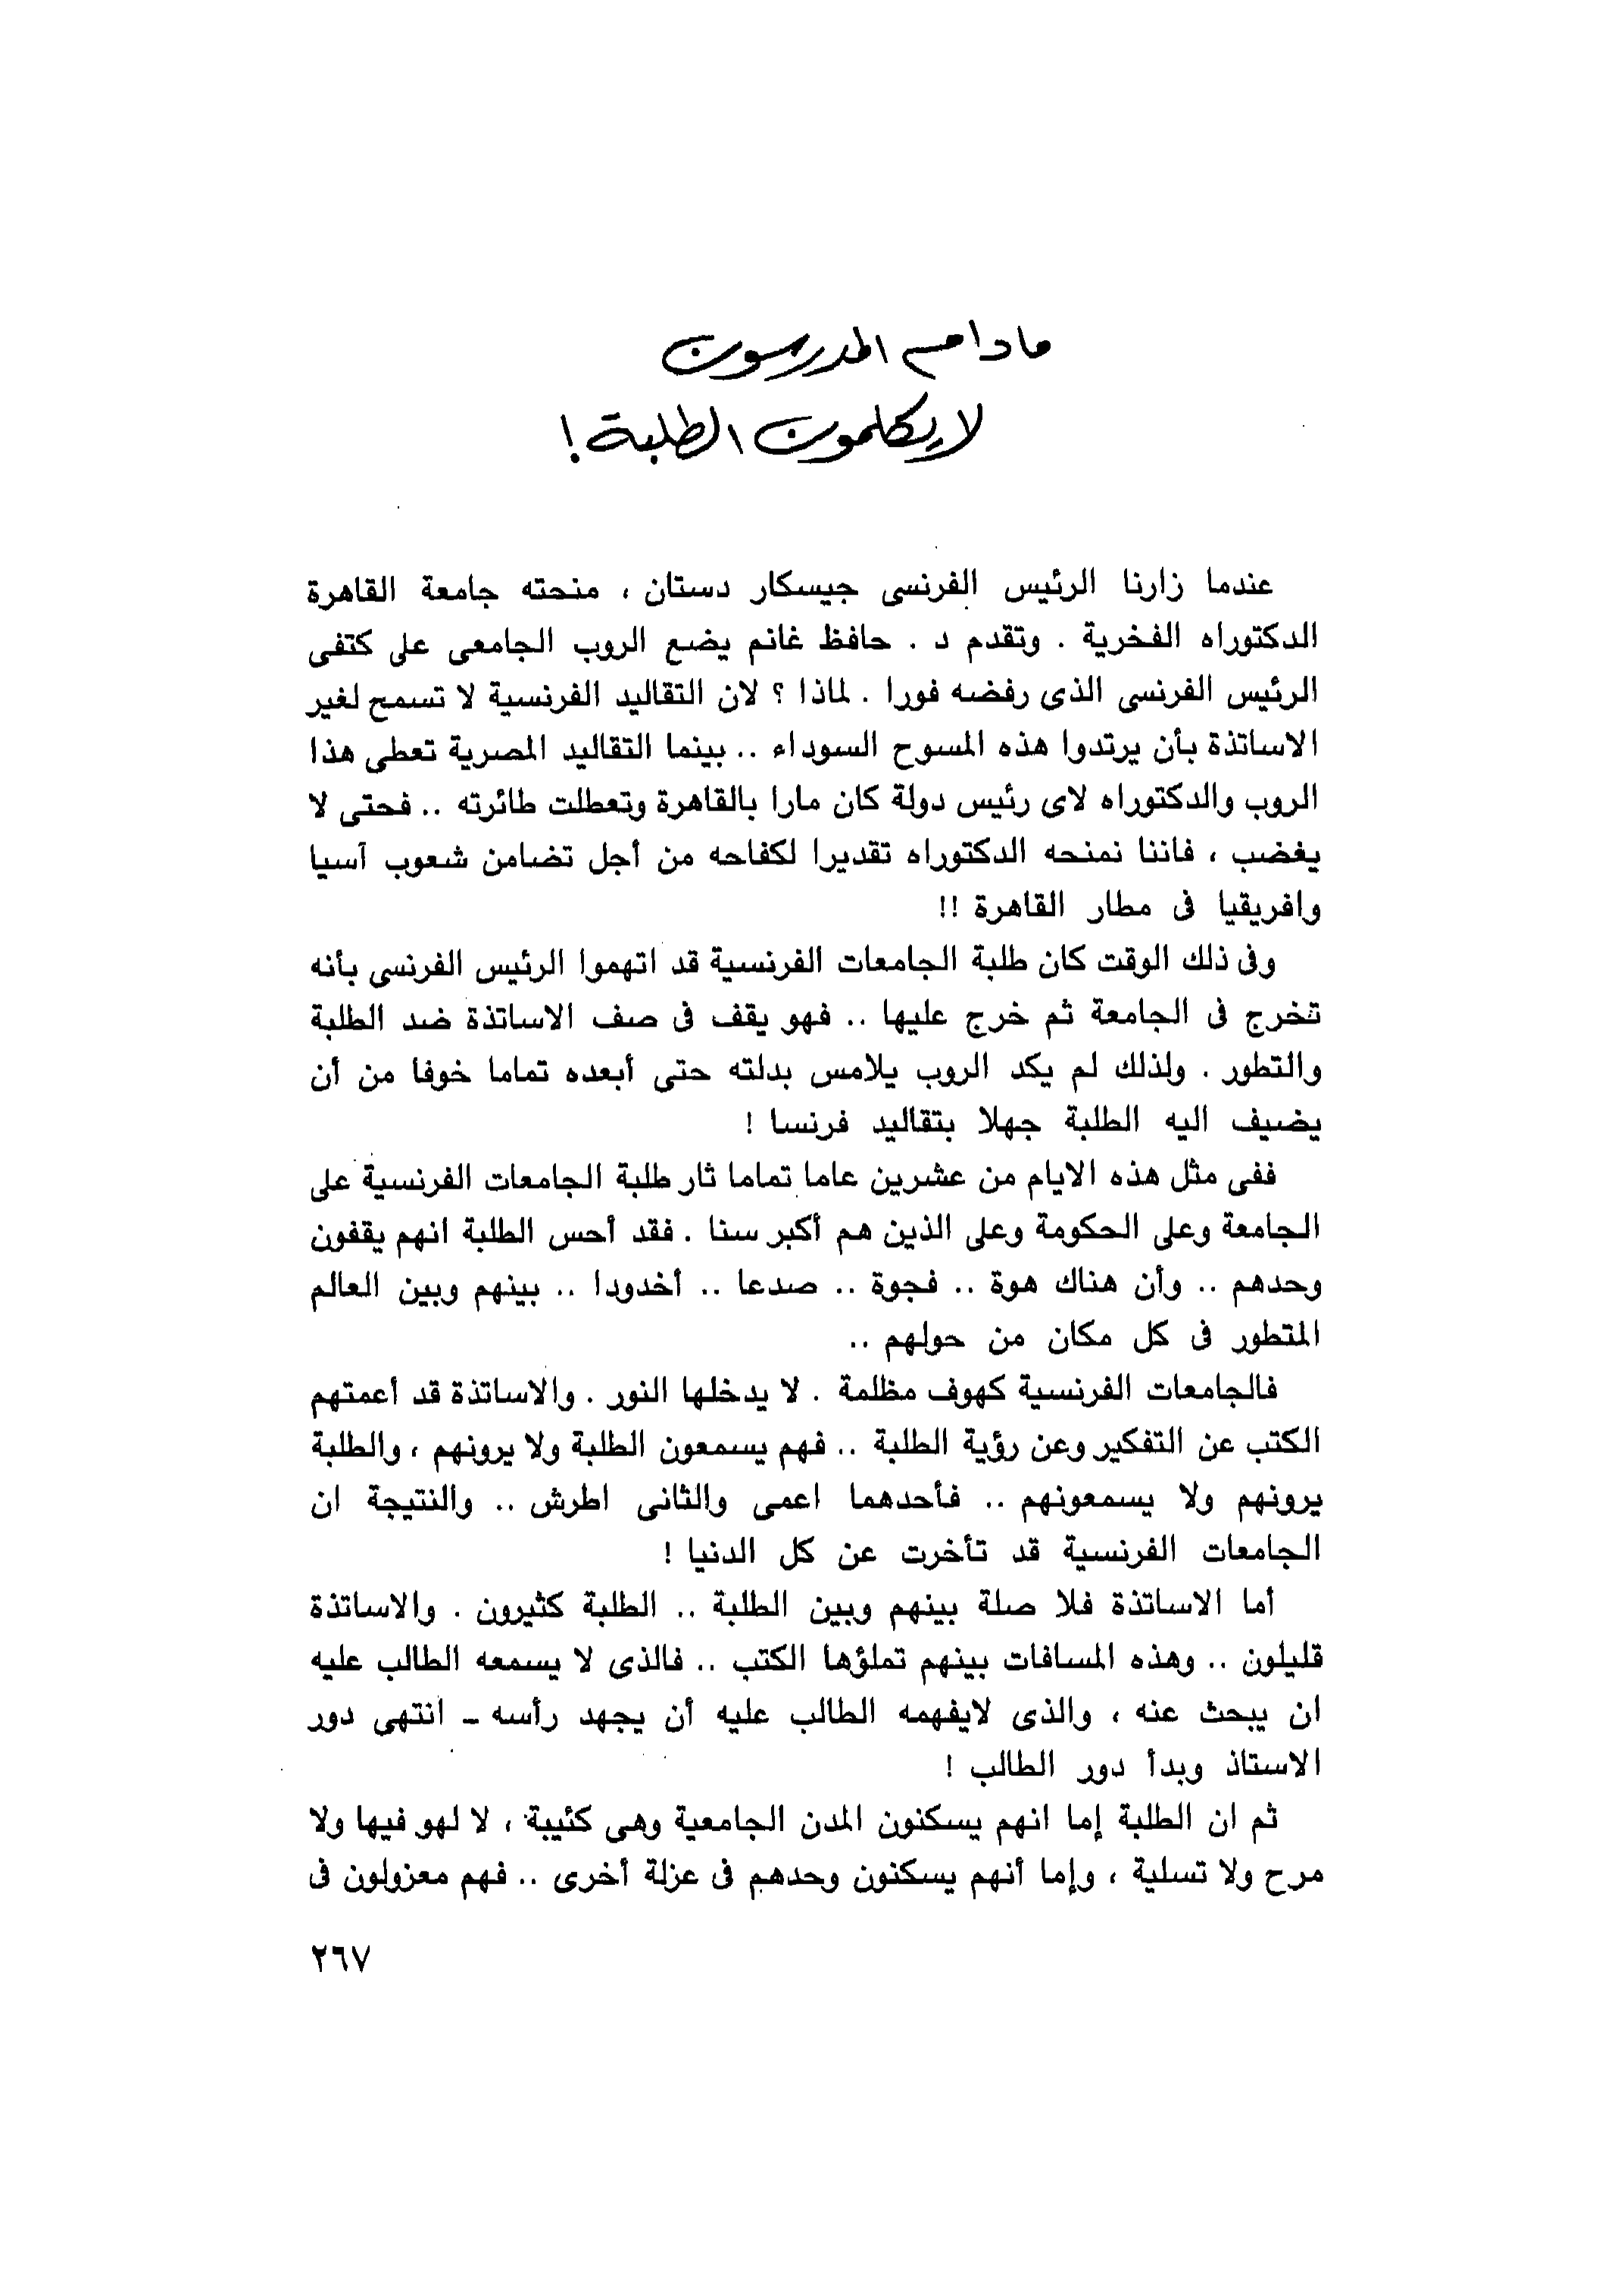 مادام المدرسون
لا يكلمون الطلبة !
عندما زارنا الرئيس الفرنسى جيسكار دستان ، منحته جامعة القاهرة
الدكتوراه الفخرية . وتقدم د . حافظ غانم يضع الروب الجامعى على كتفى
الرئيس الفرنسى الذى رفضه فورا . لماذا ؟ لان التقاليد الفرنسية لا تسمح لغير
الاساتذة بأن يرتدوا هذه المسوح السوداء .. بينما التقاليد المصرية تعطى هذا
الروب والدكتوراه لاى رئيس دولة كان مارا بالقاهرة وتعطلت طائرته .. فحتى لا
يغضب ، فاننا نمنحه الدكتوراه تقديرا لكفاحه من أجل تضامن شعوب آسيا
وافريقيا فى مطار القاهرة !!
وفى ذلك الوقت كان طلبة الجامعات الفرنسية قد اتهموا الرئيس الفرنسى بأنه
تخرج فى الجامعة ثم خرج عليها .. فهو يقف فى صف الاساتذة ضد الطلبة
والتطور . ولذلك لم يكد الروب يلامس بدلته حتى أبعده تماما خوفا من أن
يضيف اليه الطلبة جهلا بتقاليد فرنسا !
ففى مثل هذه الايام من عشرين عاما تماما ثار طلبة الجامعات الفرنسية على
الجامعة وعلى الحكومة وعلى الذين هم أكبر سنا . فقد أحس الطلبة انهم يقفون
وحدهم .. وأن هناك هوة .. فجوة .. صدعا .. أخدودا .. بينهم وبين العالم
المتطور فى كل مكان من حولهم ..
فالجامعات الفرنسية كهوف مظلمة . لا يدخلها النور . والاساتذة قد أعمتهم
الكتب عن التفكير وعن رؤية الطلبة .. فهم يسمعون الطلبة ولا يرونهم ، والطلبة
يرونهم ولا يسمعونهم .. فأحدهما اعمى والثانى اطرش .. والنتيجة ان
الجامعات الفرنسية قد تأخرت عن كل الدنيا !
أما الاساتذة فلا صلة بينهم وبين الطلبة .. الطلبة كثيرون . والاساتذة
قليلون .. وهذه المسافات بينهم تملؤها الكتب .. فالذى لا يسمعه الطالب عليه
ان يبحث عنه ، والذى لايفهمه الطالب عليه أن يجهد رأسه ـ انتهى دور
الاستاذ وبدأ دور الطالب !
ثم ان الطلبة إما انهم يسكنون المدن الجامعية وهى كئيبة ، لا لهو فيها ولا
مرح ولا تسلية ، وإما أنهم يسكنون وحدهم فى عزلة أخرى .. فهم معزولون فى
٢٦٧